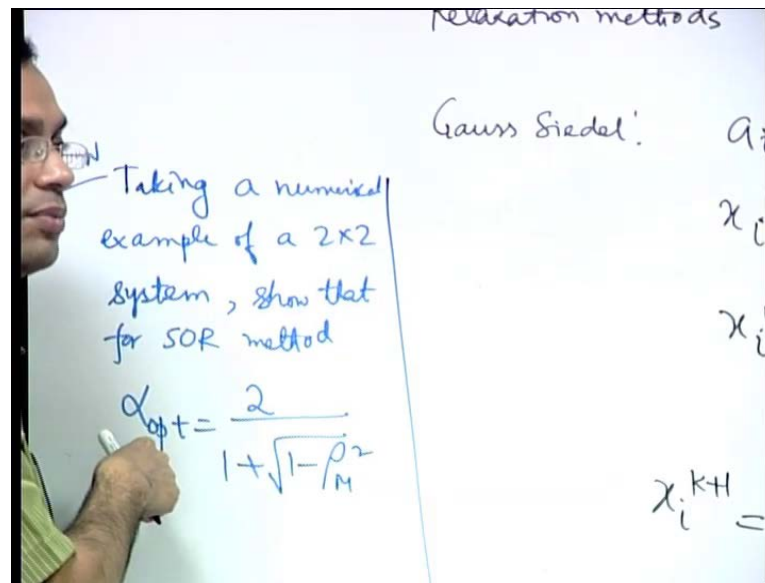 relaxation methods
Gauss Siedel:
Taking a numerical
example of a 2×2
system, show that
for SOR method
α_opt = 2 / (1 + √(1 - ρ_M^2))
x_i^{k+1} =